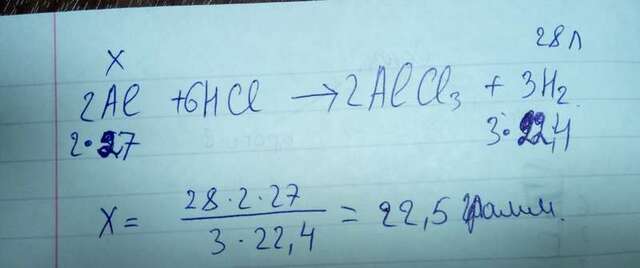 X 28 л
2Al + 6HCl → 2AlCl₃ + 3H₂
2·27 3·22,4
X = 28·2·27 / 3·22,4 = 22,5 грамм.